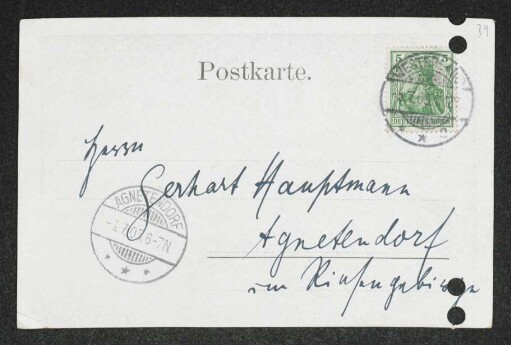 39
Postkarte.
5 5
DEUTSCHES REICH
Herrn
Gerhart Hauptmann
AGNETENDORF
6-7N
Agnetendorf
im Riesengebirge